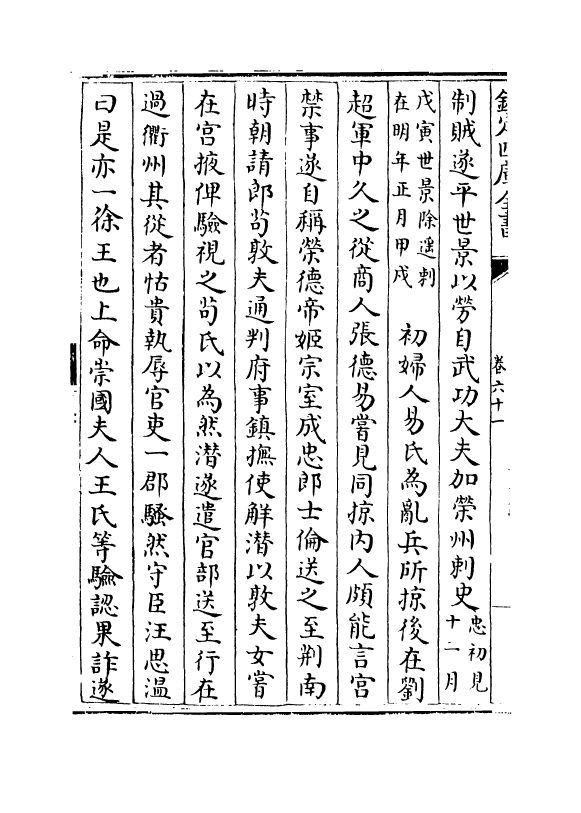 欽定四庫全書
卷六十一
制賊遂平世景以勞自武功大夫加榮州刺史
忠初見
十一月
戊寅世景除遥刺
在明年正月甲戌
初婦人易氏為亂兵所掠後在劉
超軍中久之從商人張德易嘗見同掠内人頗能言宫
禁事遂自稱榮德帝姬宗室成忠郎士倫送之至荆南
時朝請郎茍敦夫通判府事鎮撫使解潜以敦夫女嘗
在宫掖俾驗視之茍氏以為然潜遂遣官部送至行在
過衢州其從者怙貴執辱官吏一郡騷然守臣汪思温
曰是亦一徐王也上命崇國夫人王氏等驗認果詐遂